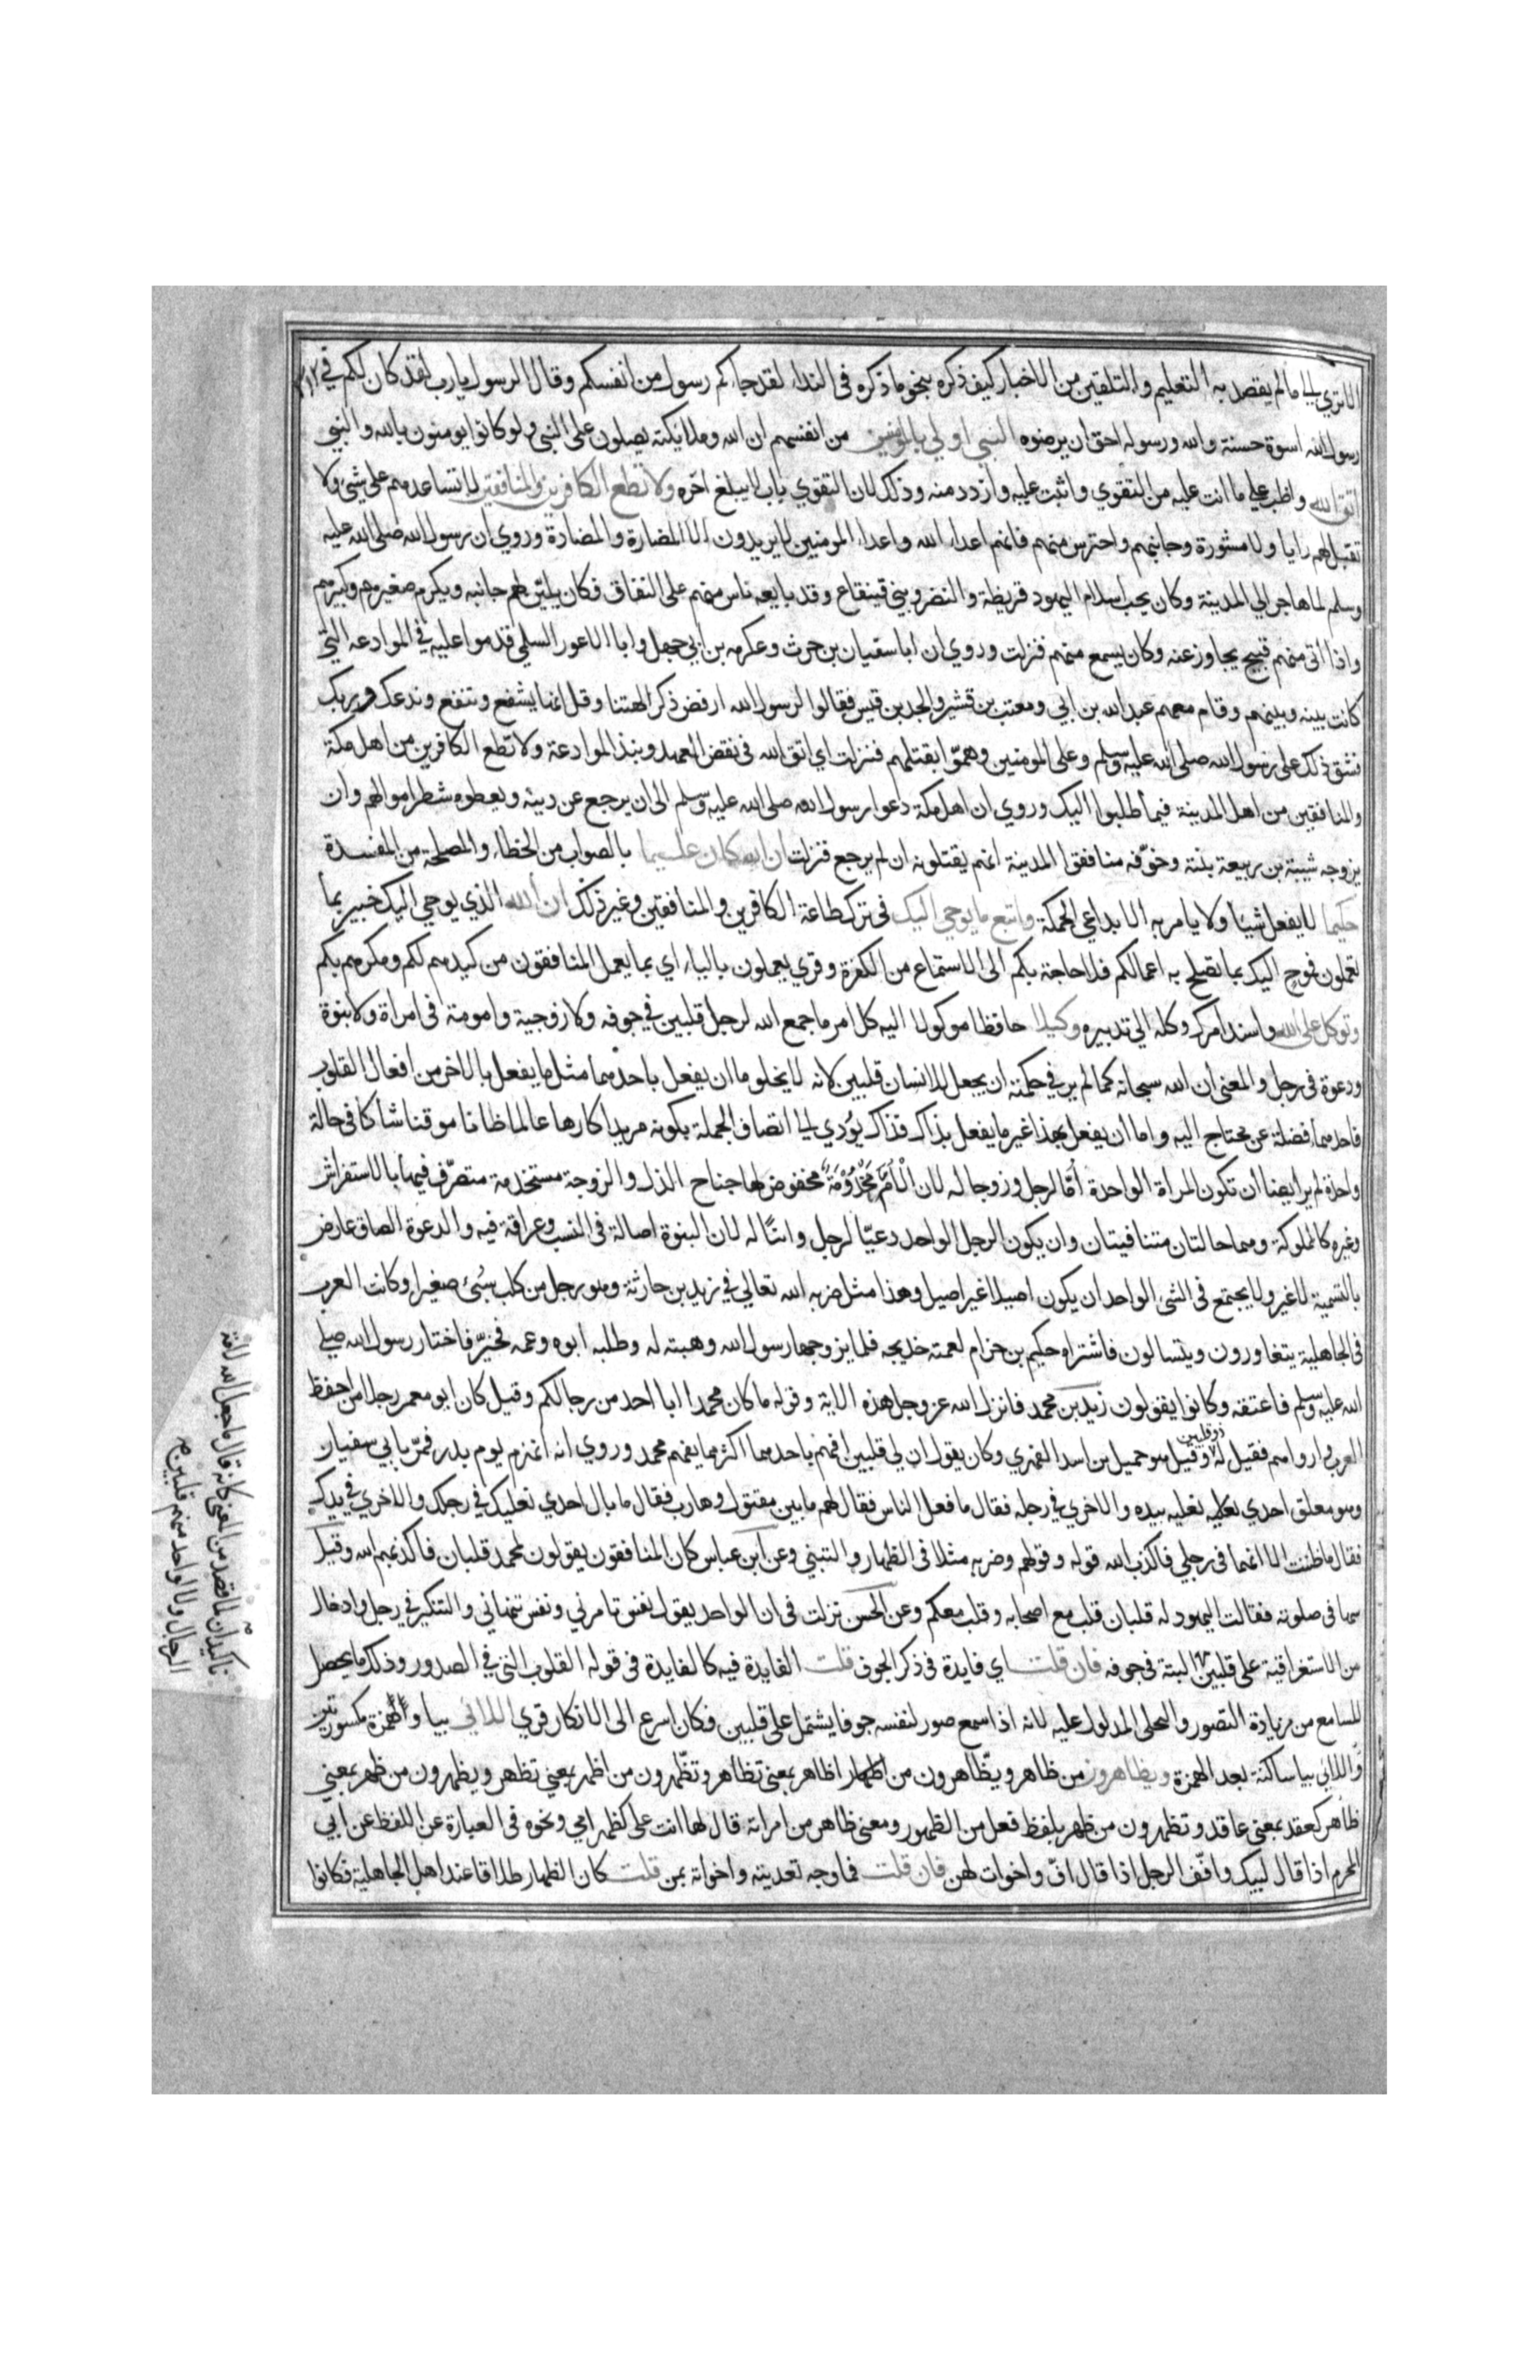 الا تري الي ما لم يقصد به التعليم والتلقين من الاخبار كيف ذكره بنحو ما ذكره في النداء لقد جاءكم رسول من انفسكم وقال الرسول يا رب لقد كان لكم في
رسول الله اسوة حسنة والله ورسوله احق ان يرضوه النبي اولي بالمومنين من انفسهم ان الله وملايكته يصلون على النبي ولو كانوا يومنون بالله والنبي
اتق الله واظب علي ما انت عليه من التقوي واثبت عليه وازدد منه وذلك لان التقوي باب لا يبلغ اخره ولا تطع الكافرين والمنافقين لا تساعدهم على شئ ولا
تقبل لهم رايا ولا مشورة وجانبهم واحترس منهم فانهم اعداء الله واعداء المومنين لا يريدون الا المضارة والمضادة وروي ان رسول الله صلى الله عليه
وسلم لما هاجر الي المدينة وكان يحب اسلام اليهود قريظة والنضر وبني قينقاع وقد بايعه ناس منهم على النفاق فكان يليّن لهم جانبه ويكرم صغيرهم وكبيرهم
واذا اتى منهم قبيح يجاوز عنه وكان يسمع منهم فنزلت وروي ان ابا سفيان بن حرث وعكرمه بن ابي جهل وابا الاعور السلمي قدموا عليه في الموادعه التي
كانت بينه وبينهم وقام معهم عبد الله بن ابي ومعتب بن قشير والجد بن قيس فقالوا لرسول الله ارفض ذكر الهتنا وقل انها يشفع وتنفع وندعك وربك
فشق ذلك على رسول الله صلى الله عليه وسلم وعلى المومنين وهمّوا بقتلهم فنزلت اي اتق الله في نقض العهد ونبذ الموادعة ولا تطع الكافرين من اهل مكة
والمنافقين من اهل المدينة فيما طلبوا اليك وروي ان اهل مكة دعوا رسول الله صلى الله عليه وسلم الى ان يرجع عن دينه ويعطوه شطر اموالهم وان
يزوجه شيبة بن ربيعة بنته وخوّفه منافقوا المدينة انهم يقتلونه ان لم يرجع فنزلت ان الله كان عليما بالصواب من الخطاء والمصلحة من المفسدة
حكيما لا يفعل شيا ولا يامر به الا بداعي الحكمة واتبع ما يوحي اليك في ترك طاعة الكافرين والمنافقين وغير ذلك ان الله الذي يوحي اليك خبير بما
تعملون فموح اليك بما تصلح به اعمالكم فلا حاجة بكم الى الاستماع من الكفرة وقري يعملون بالياء اي بما يعمل المنافقون من كيدهم لكم ومكرهم بكم
وتوكل على الله واسند امرك وكله الي تدبيره وكيلا حافظا موكولا اليه كل امر ما جمع الله لرجل قلبين في جوفه ولا زوجية وامومة في امراة ولا بنوة
ودعوة في رجل والمعنى ان الله سبحانه كما لم ير في حكمته ان يجعل للانسان قلبين لانه لا يخلو ما ان يفعل باحدهما مثل ما يفعل بالاخر من افعال القلوب
فاحدهما فضلة عن محتاج اليه واما ان يفعل بهذا غير ما يفعل بذاك فذاك يؤدي الي اتصاف الجملة بكونه مريدا كارها عالما ظانا موقنا شاكا في حالة
واحدة لم ير ايضا ان تكون المراة الواحدة اُمّا لرجل وزوجا له لان الامّ مخدومة مخفوض لها جناح الذل والزوجة مستخدمة متصرّف فيها بالاستفراش
وغيره كالمملوكة وهما حالتان متنافيتان وان يكون الرجل الواحد دعيّا لرجل وابنًا له لان البنوة اصالة في النسب وعراقة فيه والدعوة الصاق عارض
بالتسمية لا غير ولا يجتمع في الشئ الواحد ان يكون اصيلا غير اصيل وهذا مثل ضربه الله تعالي في زيد بن حارثة وهو رجل من كلب سُبي صغيرا وكانت العرب
في الجاهلية يتغاورون ويتسالون فاشتراه حكيم بن حزام لعمته خديجه فلما يزوجها رسول الله وهبته له وطلبه ابوه وعمه فخيّر فاختار رسول الله صلي
الله عليه وسلم فاعتقه وكانوا يقولون زيد بن محمد فانزل الله عز وجل هذه الاية وقوله ما كان محمد ابا احد من رجالكم وقيل كان ابو معمر رجلا من احفظ
العرب واروامهم فقيل له ذو قلبين وقيل هو جميل بن اسد الفهري وكان يقول ان لي قلبين افهم باحدهما اكثر مما يفهم محمد وروي انه انهزم يوم بدر فمرّ بابي سفيان
وهو معلق احدي نعليه بيده والاخري في رجله فقال ما فعل الناس فقال لهم ما بين مقتول وهارب فقال ما بال احدي نعليك في رجلك والاخري في يدك
فقال ما ظننت الا انهما في رجلي فاكذب الله قوله وقولهم وضربه مثلا في الظهار والتبني وعن ابن عباس كان المنافقون يقولون لمحمد قلبان فاكذبهم الله وقيل
سها في صلوته فقالت اليهود له قلبان قلب مع اصحابه وقلب معكم وعن الحسن نزلت في ان الواحد يقول نفس تامرني ونفس تنهاني والتنكير في رجل وادخال
من الاستغراقية على قلبين البتة في جوفه فان قلت اي فايدة في ذكر الجوف قلت الفايدة فيه كالفايدة في قوله القلوب التي في الصدور وذلك ما يحصل
للسامع من زيادة التصور والتجلي المدلول عليه لانه اذا سمع صور لنفسه جوفا يشتمل على قلبين فكان اسرع الى الانكار قري اللائي بيا وهمزة مكسورتين
واللائي بيا ساكنة بعد الهمزة ويظاهرون من ظاهر ويظّاهرون من اظهار اظاهر بمعنى تظاهر وتظّهرون من اظهر بمعني تظهر ويظهرون من ظهر بمعني
ظاهر كعقد بمعني عاقد وتظهرون من ظهر بلفظ فعل من الظهور ومعنى ظاهر من امراته قال لها انت علي كظهر امي ونحوه في العبارة عن اللفظ عن ابي
المحرم اذا قال لبيك وافّف الرجل اذا قال افّ واخوات لهن فان قلت فما وجه تعديته واخواته بمن قلت كان الظهار طلاقا عند اهل الجاهلية فكانوا
تاكيدان لما قصد من المعنى كانه قال ما جعل الله لامة
الرجال ولا لواحد منهم قلبين